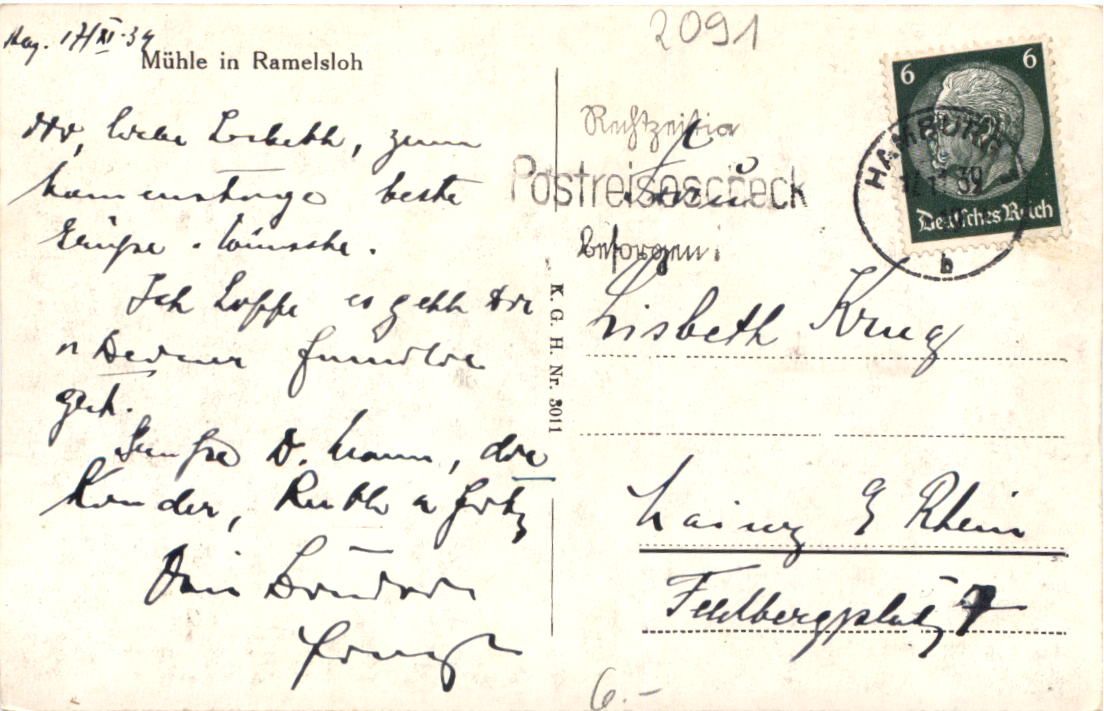 17/XI.39
Mühle in Ramelsloh
2091
liebe Lisbeth, zum
Namenstage beste
Grüsse. Wünsche.
Ich hoffe es geht Dir
u Deiner Familie
gut.
Grüsse D. Mann, die
Kinder, Ruth u Fritz
Dein Bruder
Rechtzeitig
Postreisescheck
besorgen!
6 6
Deutsches Reich
HAMBURG
39
b
K. G. H. Nr. 3011
Lisbeth Krug
Mainz a Rhein
Feldbergplatz 7
6.-